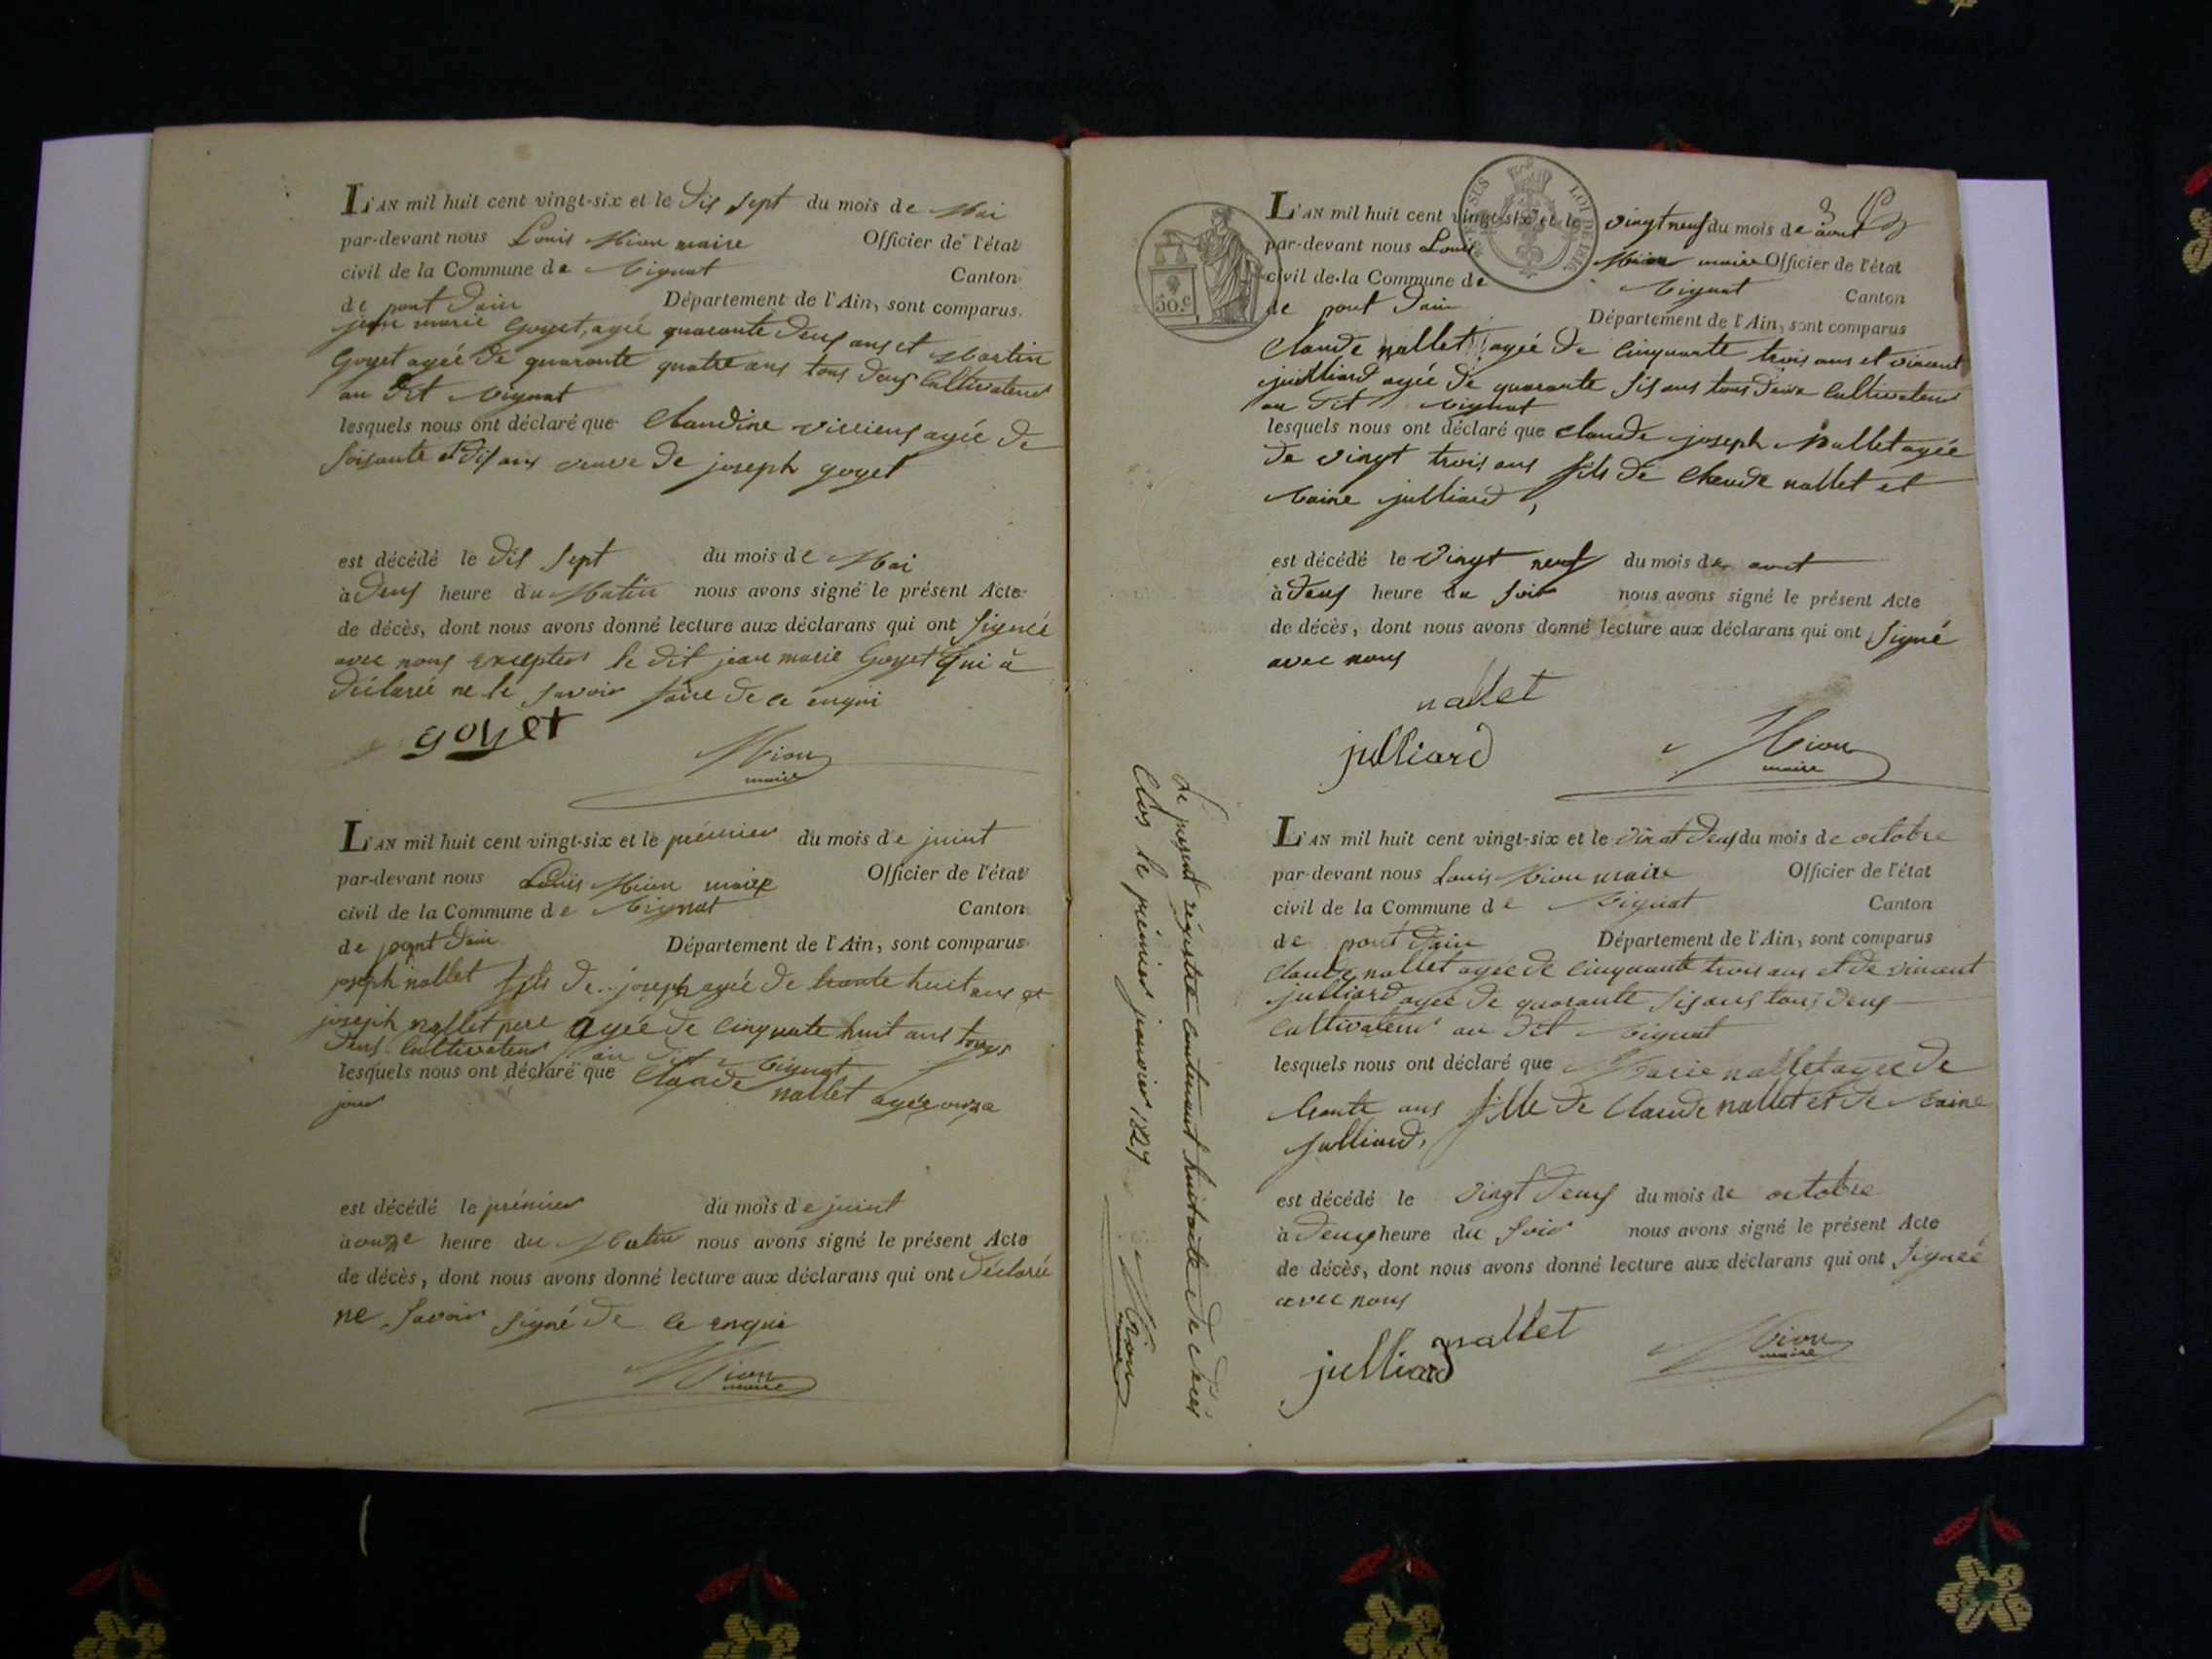 L'AN mil huit cent vingt-six et le dix sept du mois de Mai
par-devant nous Louis Mion maire Officier de l'état
civil de la Commune de Canton
de pont dain Département de l'Ain, sont comparus
jean marie Goyet, agée quarante deux ans et Martin
Goyet agée de quarante quatre ans tous deux Cultivateurs
au dit
lesquels nous ont déclaré que Claudine agée de
soixante et dix ans veuve de joseph goyet
est décédé le dix sept du mois de Mai
à deux heure du Matin nous avons signé le présent Acte
de décès, dont nous avons donné lecture aux déclarans qui ont signée
avec nous le dit jean marie Goyet qui à
déclarée ne le savoir faire de ce enqui
goyet
Mion
maire
L'AN mil huit cent vingt-six et le prémier du mois de juint
par-devant nous Louis Mion maire Officier de l'état
civil de la Commune de Canton
de pont dain Département de l'Ain, sont comparus
joseph nallet fils de joseph agée de trente huit ans et
joseph nallet pere agée de cinquate huit ans tous
deux Cultivateurs au dit
lesquels nous ont déclaré que Claude nallet agée onze
jour
est décédé le prémier du mois de juint
à onze heure du Matin nous avons signé le présent Acte
de décès, dont nous avons donné lecture aux déclarans qui ont déclarée
ne savoir signé de ce enqui
Mion
maire
LOI DE 1816
30.c
L'AN mil huit cent vingt-six et le vingt neuf du mois de aout
par-devant nous Louis Mion maire Officier de l'état
civil de la Commune de Canton
de pont dain Département de l'Ain, sont comparus
Claude nallet agée de Cinquante trois ans et vincent
julliard agée de quarante sis ans tous deux Cultivateurs
au dit
lesquels nous ont déclaré que claude joseph Nallet agée
de vingt trois ans fils de Claude nallet et
julliard,
est décédé le vingt neuf du mois de aout
à deux heure du soir nous avons signé le présent Acte
de décès, dont nous avons donné lecture aux déclarans qui ont signé
avec nous
nallet
julliard
Mion
maire
L'AN mil huit cent vingt-six et le vingt deux du mois de octobre
par-devant nous Louis Mion maire Officier de l'état
civil de la Commune de Canton
de pont dain Département de l'Ain, sont comparus
Claude nallet agée de Cinquante trois ans et de vincent
julliard agée de quarante sis ans tous deux
Cultivateurs au dit
lesquels nous ont déclaré que Marie nallet agée de
trente ans fille de Claude nallet et de
julliard,
est décédé le vingt deux du mois de octobre
à deux heure du soir nous avons signé le présent Acte
de décès, dont nous avons donné lecture aux déclarans qui ont signée
avec nous
nallet
julliard
Mion
maire
Le présent régistre contenant huit acte de déces
Clos le prémier janvier 1827
Mion
maire